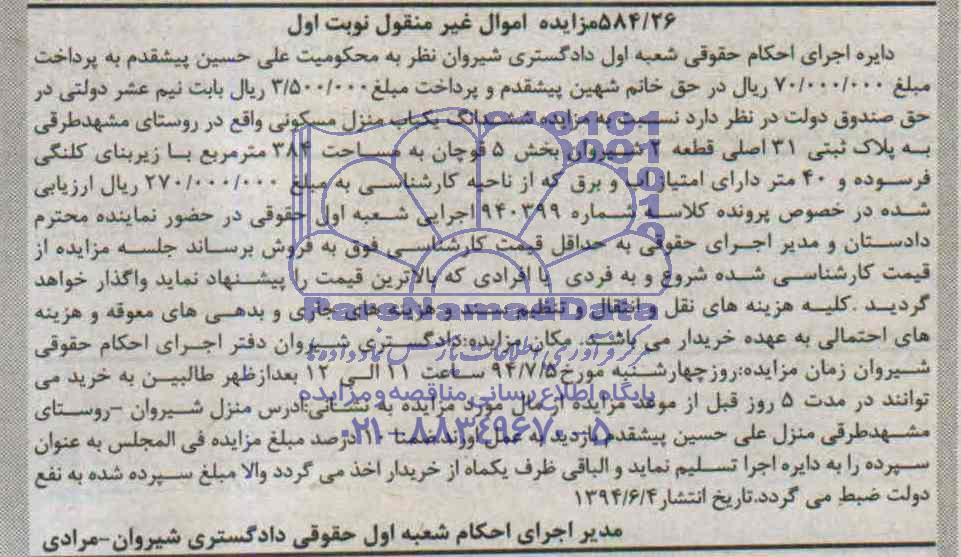 ۵۸۴/۲۶مزایده اموال غیر منقول نوبت اول
دایره اجرای احکام حقوقی شعبه اول دادگستری شیروان نظر به محکومیت علی حسین پیشقدم به پرداخت
مبلغ ۷۰/۰۰۰/۰۰۰ ریال در حق خانم شهین پیشقدم و پرداخت مبلغ ۳/۵۰۰/۰۰۰ ریال بابت نیم عشر دولتی در
حق صندوق دولت در نظر دارد نسبت به مزایده ششدانگ یکباب منزل مسکونی واقع در روستای مشهدطرقی
به پلاک ثبتی ۳۱ اصلی قطعه ۲ شیروان بخش ۵ قوچان به مساحت ۳۸۴ مترمربع با زیربنای کلنگی
فرسوده و ۴۰ متر دارای امتیاز آب و برق که از ناحیه کارشناسی به مبلغ ۲۷۰/۰۰۰/۰۰۰ ریال ارزیابی
شده در خصوص پرونده کلاسه شماره ۹۴۰۳۹۹ اجرایی شعبه اول حقوقی در حضور نماینده محترم
دادستان و مدیر اجرای حقوقی به حداقل قیمت کارشناسی فوق به فروش برساند جلسه مزایده از
قیمت کارشناسی شده شروع و به فردی یا افرادی که بالاترین قیمت را پیشنهاد نماید واگذار خواهد
گردید .کلیه هزینه های نقل و انتقال و تنظیم سند و هزینه های جاری و بدهی های معوقه و هزینه
های احتمالی به عهده خریدار می باشد. مکان مزایده:دادگستری شیروان دفتر اجرای احکام حقوقی
شیروان زمان مزایده:روزچهارشنبه مورخ۹۴/۷/۵ ساعت ۱۱ الی ۱۲ بعدازظهر طالبین به خرید می
توانند در مدت ۵ روز قبل از موعد مزایده از مال مورد مزایده به نشانی:آدرس منزل شیروان -روستای
مشهدطرقی منزل علی حسین پیشقدم بازدید به عمل آورند ضمنا ۱۰درصد مبلغ مزایده فی المجلس به عنوان
سپرده را به دایره اجرا تسلیم نماید و الباقی ظرف یکماه از خریدار اخذ می گردد والا مبلغ سپرده شده به نفع
دولت ضبط می گردد.تاریخ انتشار۱۳۹۴/۶/۴
مدیر اجرای احکام شعبه اول حقوقی دادگستری شیروان-مرادی
ParsNamadData
مرکز فرآوری اطلاعات پارس نماد داده ها
پایگاه اطلاع رسانی مناقصه و مزایده
۰۲۱-۸۸۳۴۹۶۷۰-۵